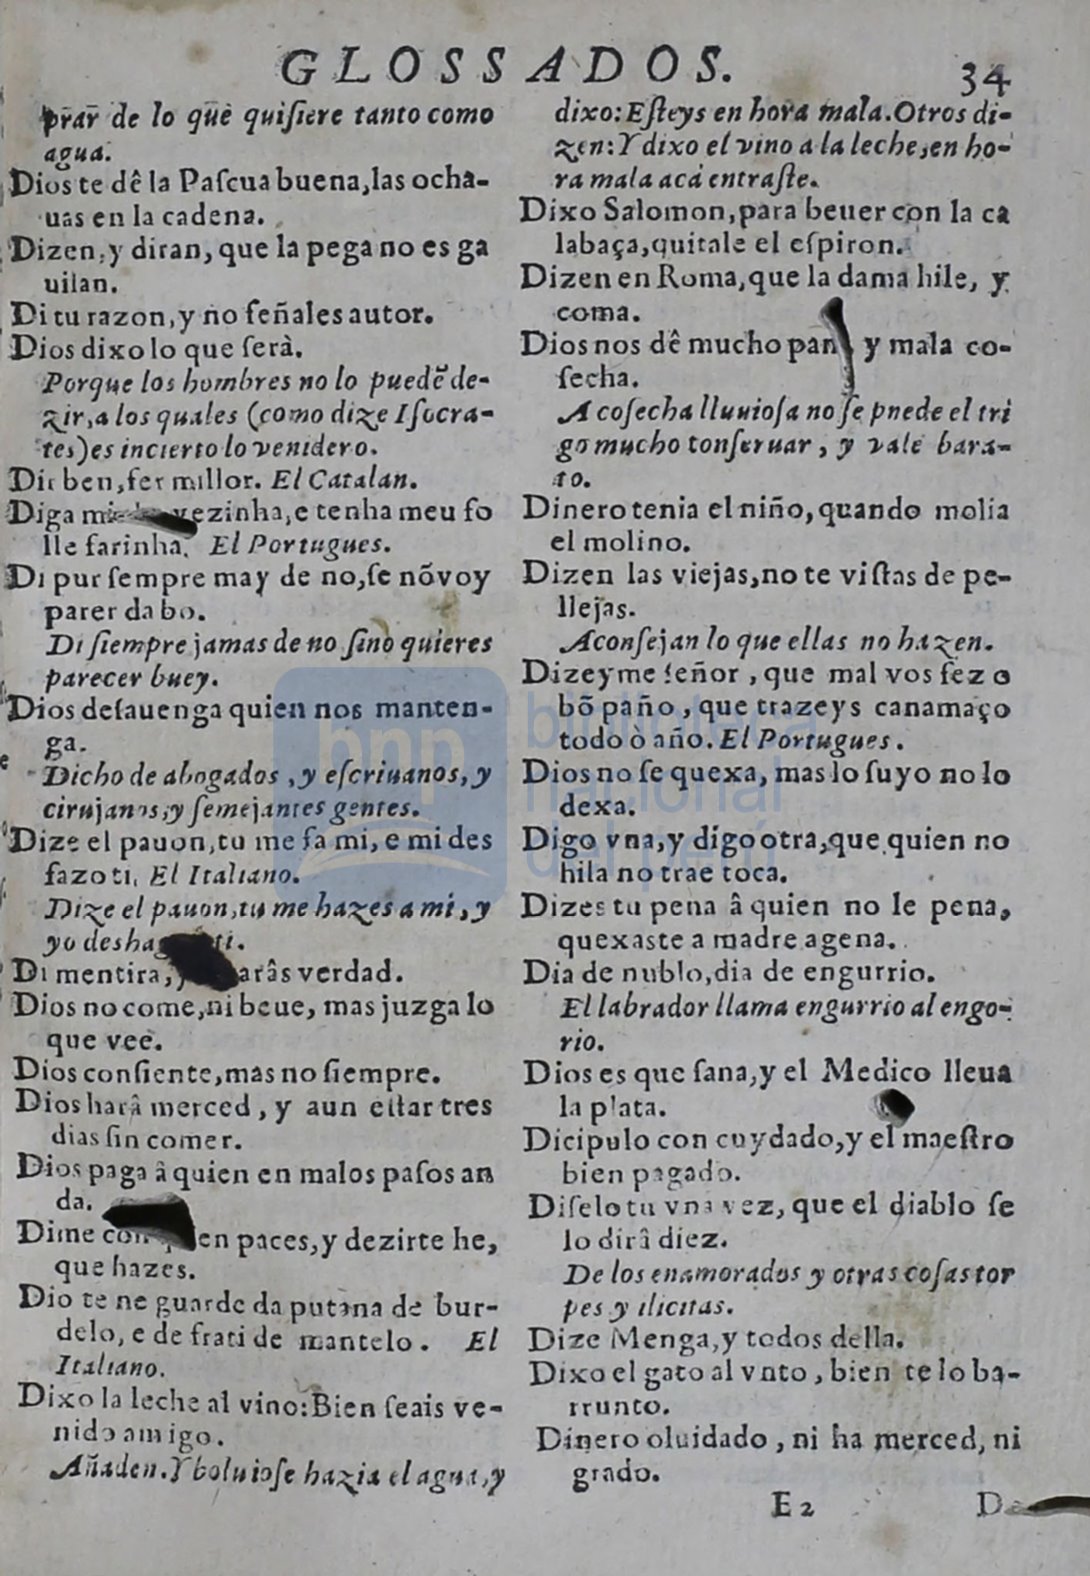 GLOSSADOS. 34
prar de lo que quiſiere tanto como
agua.
Dios te dê la Paſcua buena, las ocha-
uas en la cadena.
Dizen, y diran, que la pega no es ga
uilan.
Di tu razon, y no ſeñales autor.
Dios dixo lo que ſerà.
Porque los hombres no lo puedẽ de-
zir, a los quales (como dize Iſocra-
tes) es incierto lo venidero.
Dir ben, fer millor. El Catalan.
Diga vezinha, e tenha meu fo
lle farinha. El Portugues.
Di pur ſempre may de no, ſe nõ voy
parer da bo.
Di ſiempre jamas de no ſino quieres
parecer buey.
Dios deſauenga quien nos manten-
ga.
Dicho de abogados, y eſcriuanos, y
cirujanos, y ſemejantes gentes.
Dize el pauon, tu me fa mi, e mi des
fazo ti. El Italiano.
Dize el pauon, tu me hazes a mi, y
yo ti.
Di mentira, verdad.
Dios no come, ni beue, mas juzga lo
que vee.
Dios conſiente, mas no ſiempre.
Dios harâ merced, y aun eſtar tres
dias ſin comer.
Dios paga â quien en malos paſos an
da.
Dime paces, y dezirte he,
que hazes.
Dio te ne guarde da putana de bur-
delo, e de frati de mantelo. El
Italiano.
Dixo la leche al vino: Bien ſeais ve-
nido amigo.
Añaden. Y boluioſe hazia el agua, y
dixo: Eſteys en hora mala. Otros di-
zen: Y dixo el vino a la leche, en ho-
ra mala acà entraſte.
Dixo Salomon, para beuer con la ca
labaça, quitale el eſpiron.
Dizen en Roma, que la dama hile, y
coma.
Dios nos dê mucho pan y mala co-
ſecha.
A coſecha lluuioſa no ſe pnede el tri
go mucho conſeruar, y vale bara-
to.
Dinero tenia el niño, quando molia
el molino.
Dizen las viejas, no te viſtas de pe-
llejas.
Aconſejan lo que ellas no hazen.
Dizeyme ſeñor, que mal vos fez o
bõ paño, que trazeys canamaço
todo ò año. El Portugues.
Dios no ſe quexa, mas lo ſuyo no lo
dexa.
Digo vna, y digo otra, que quien no
hila no trae toca.
Dizes tu pena â quien no le pena,
quexaste a madre agena.
Dia de nublo, dia de engurrio.
El labrador llama engurrio al engo-
rio.
Dios es que ſana, y el Medico lleua
la plata.
Dicipulo con cuydado, y el maeſtro
bien pagado.
Diſelo tu vna vez, que el diablo ſe
lo dirâ diez.
De los enamorados y otras coſas tor
pes y ilicitas.
Dize Menga, y todos della.
Dixo el gato al vnto, bien te lo ba-
rrunto.
Dinero oluidado, ni ha merced, ni
grado.
E2
bnp biblioteca
nacional
del perú